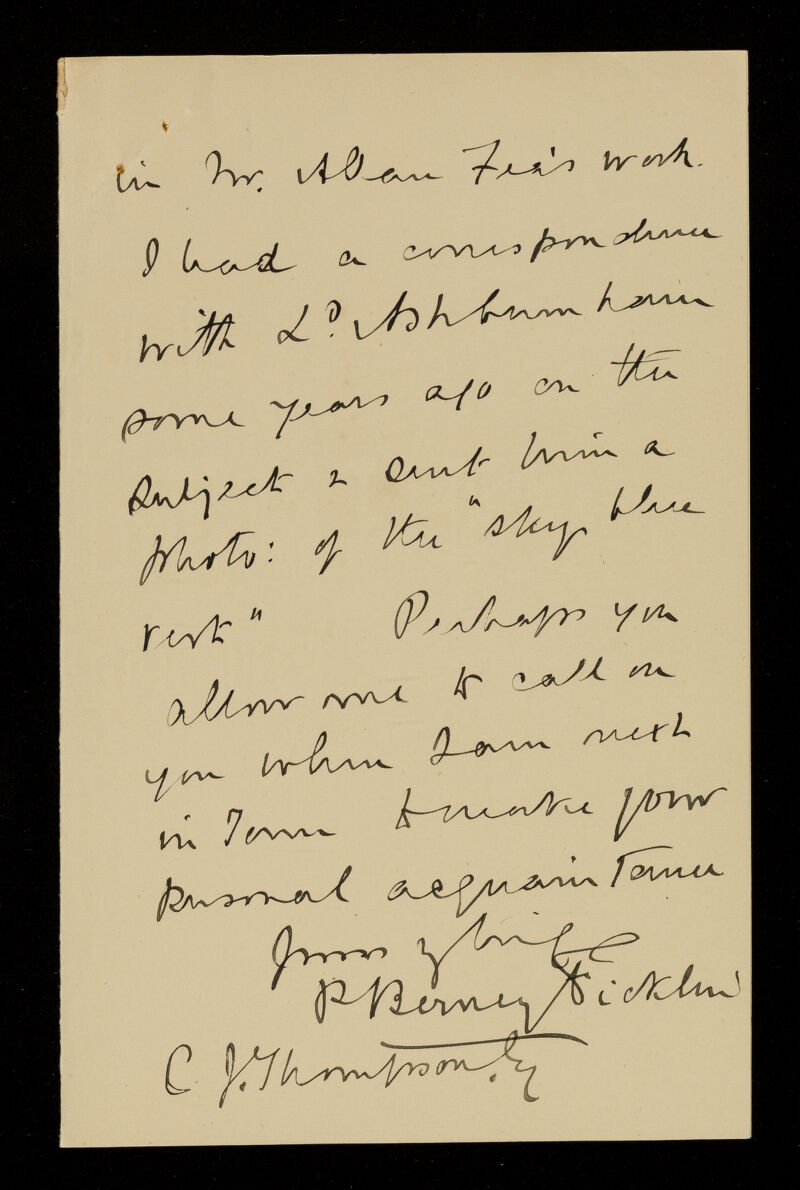 in Mr. Allan Fea's work.
I had a correspondence
with Ld. Ashburnham
some years ago on the
subject & sent him a
photo: of the "sky blue
vest" Perhaps you
allow me to call on
you when I am next
in Town to make your
personal acquaintance
Yours
P Berney Ficklin
C J. Thompson. Esq